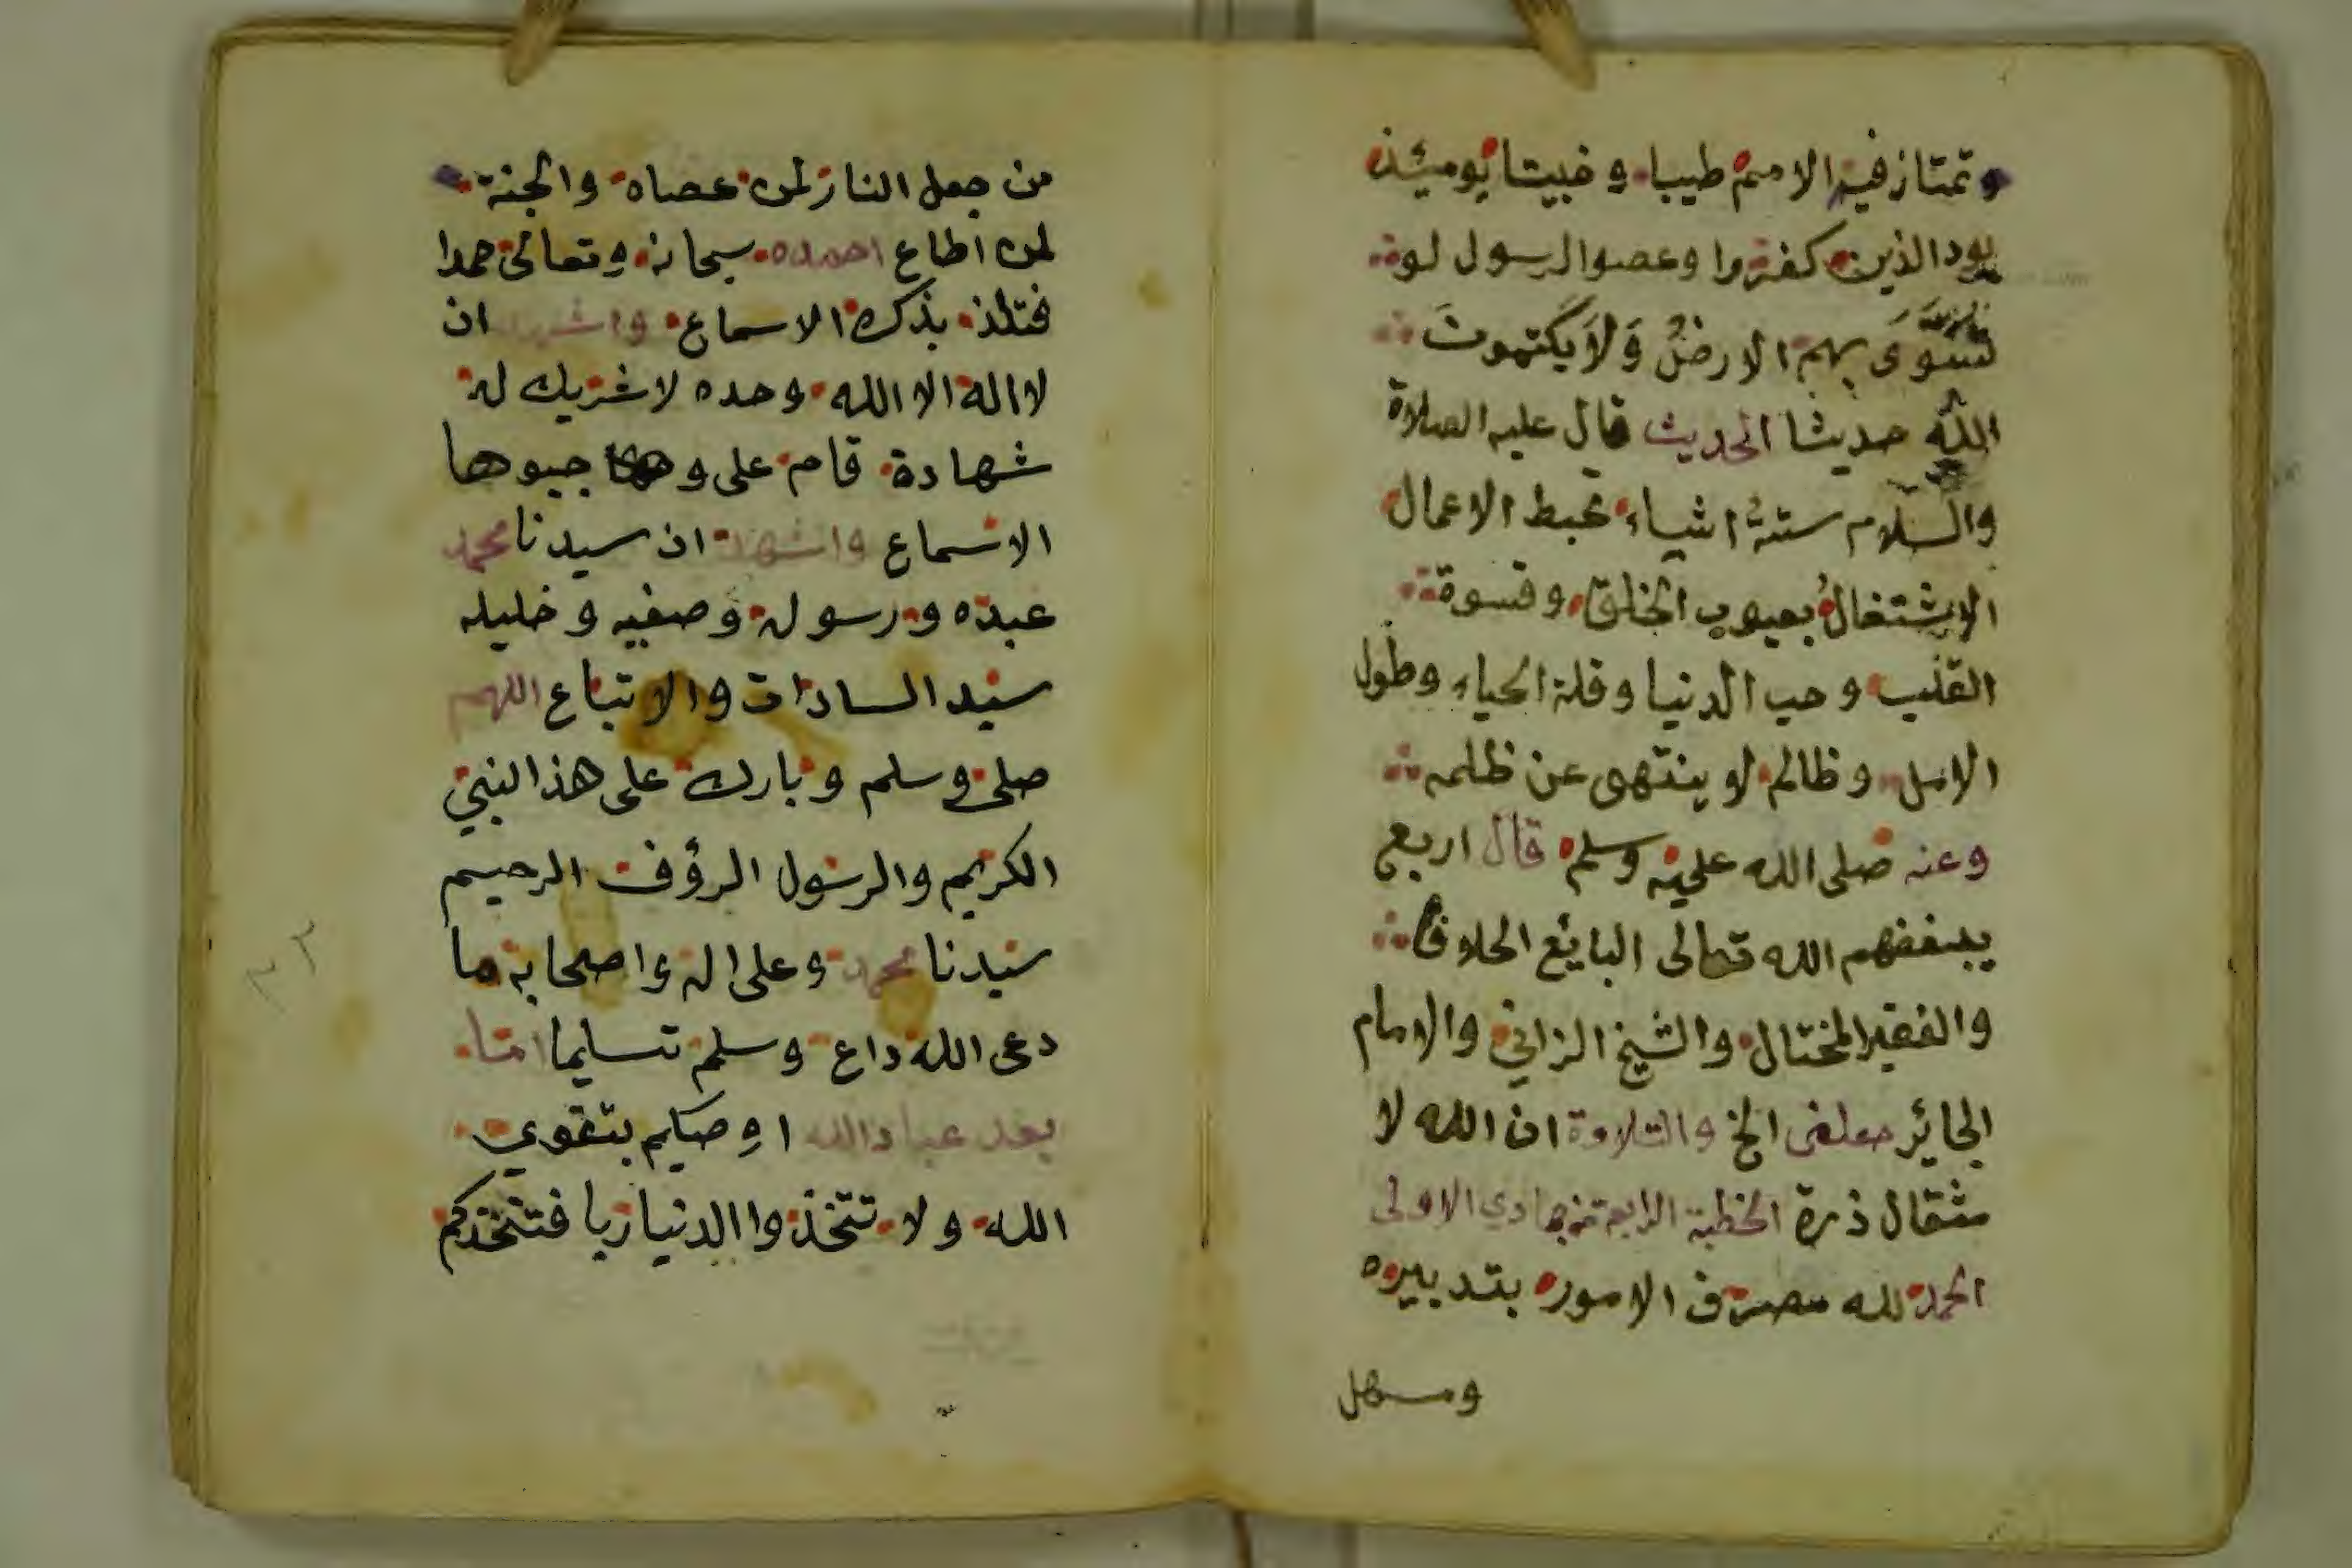 وتمتاز فيه الامم طيبا وخبيثا يومئذ
يود الذين كفروا وعصوا الرسول لو
تسوى بهم الارض ولا يكتمون
الله حديثا الحديث قال عليه الصلاة
والسلام ستة اشياء تحبط الاعمال
الاشتغال بعيوب الخلق وقسوة
القلب وحب الدنيا وقلة الحياء وطول
الامل وظالم لو ينتهى عن ظلمه
وعنه صلى الله عليه وسلم قال اربع
يبغضهم الله تعالى البايع الحلاف
والفقير المختال والشيخ الزاني والامام
الجائر الخ والتلاوة ان الله لا
مثقال ذرة الخطبة الرابعة من جمادي الاولى
الحمد لله مصرف الامور بتدبيره
ومسهل
من جعل النار لمن عصاه والجنة
لمن اطاع احمده سبحانه وتعالى حمدا
فتلذ بذكره الاسماع واشهد ان
لا اله الا الله وحده لا شريك له
شهادة قام على
الاسماع واشهد ان سيدنا محمد
عبده ورسوله وصفيه وخليله
سيد السادات والاتباع اللهم
صلى وسلم وبارك على هذا النبي
الكريم والرسول الرؤف الرحيم
سيدنا محمد وعلى اله واصحابه ما
دعى الله داع وسلم تسليما اما
بعد عباد الله اوصيكم بتقوي
الله ولا تتخذوا الدنيا ربا فتتخذكم